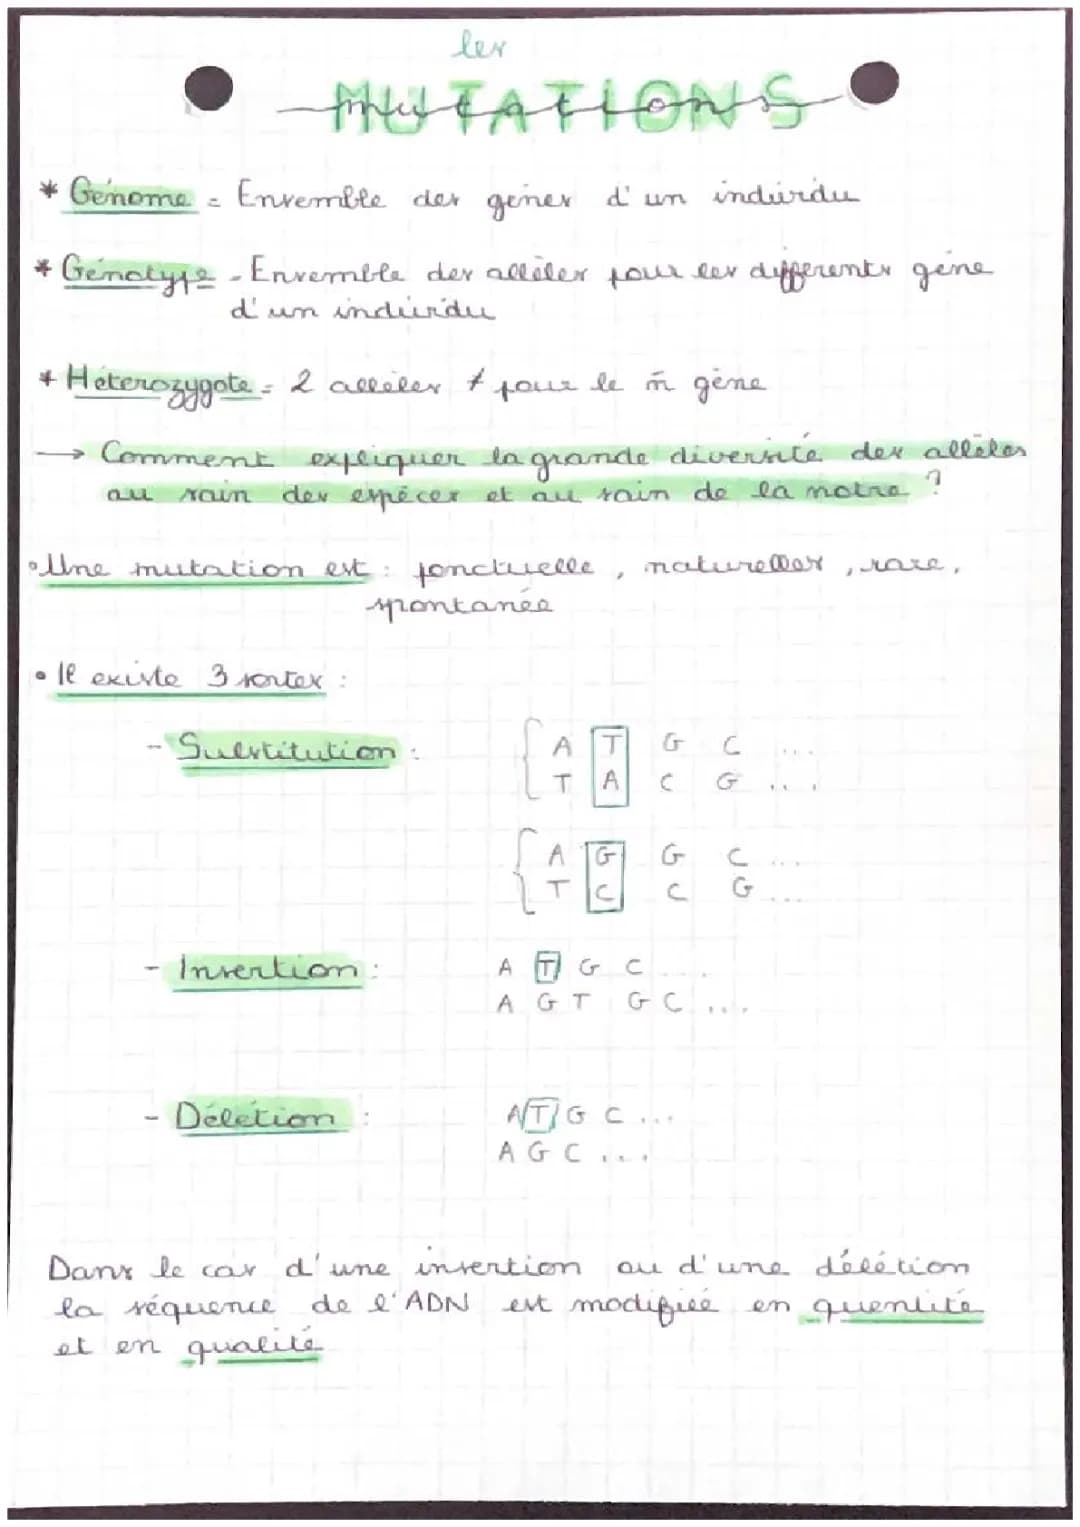 les
MUTATIONS
* Génome = Ensemble des gènes d'un individu
* Génotype = Ensemble des allèles pour les différents gène
d'un individu
* Hétérozygote = 2 allèles ≠ pour le m̂ gène
→ Comment expliquer la grande diversité des allèles
au sain des espèces et au sain de la notre ?
• Une mutation est : ponctuelle, naturelles, rare,
spontanée
• Il existe 3 sortes :
- Substitution :
A T G C ...
T A C G ...
A G G C ...
T C C G ...
- Insertion :
A T G C ....
A G T G C ...
- Délétion :
A T G C ...
A G C ...
Dans le cas d'une insertion ou d'une délétion
la séquence de l'ADN est modifiée en quentité
et en qualité